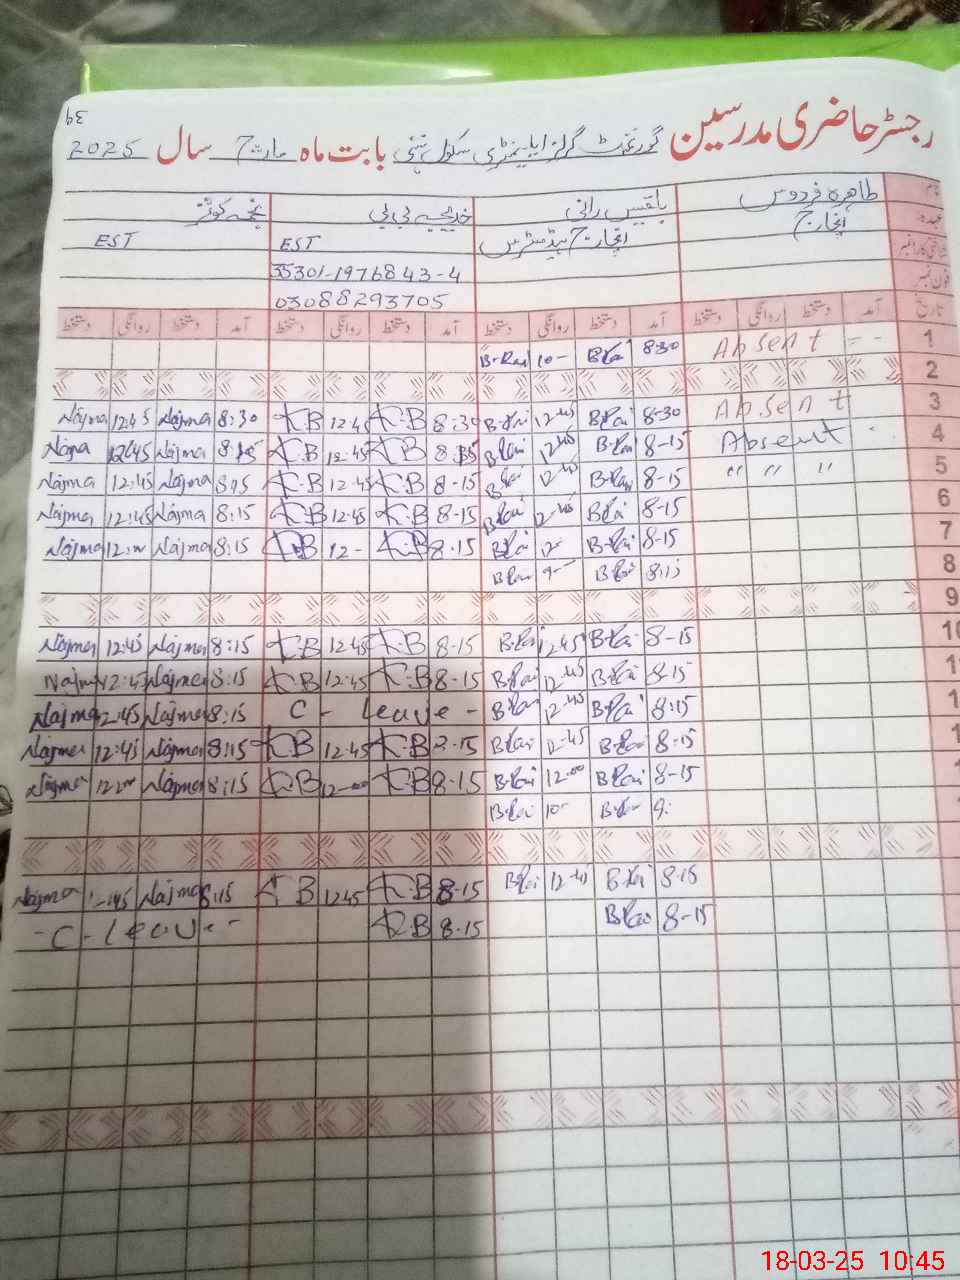 39
رجسٹر حاضری مدرسین گورنمنٹ گرلز ایلیمنٹری سکول بابت ماہ مارچ سال 2025
نام طاہرہ فردوس بلقیس رانی خدیجہ بی بی نجمہ کوثر
عہدہ انچارج انچارج ہیڈمسٹریس EST EST
شناختی کارڈ نمبر 35301-1976843-4
فون نمبر 03088293705
تاریخ آمد دستخط روانگی دستخط آمد دستخط روانگی دستخط آمد دستخط روانگی دستخط آمد دستخط روانگی دستخط
B-Rai 10- B-Rai 8-30 Absent -- 1
2
Najma 12:45 Najma 8:30 K-B 12-45 K-B 8-30 B-Rai 12-45 B-Rai 8-30 Absent 3
Najma 12:45 Najma 8:15 K-B 12-45 K-B 8-15 B-Rai 12-45 B-Rai 8-15 Absent 4
Najma 12:45 Najma 8:15 K-B 12-45 K-B 8-15 B-Rai 12-45 B-Rai 8-15 " " " 5
Najma 12:45 Najma 8:15 K-B 12-45 K-B 8-15 B-Rai 12-45 B-Rai 8-15 6
Najma 12:00 Najma 8:15 K-B 12- K-B 8-15 B-Rai 12- B-Rai 8-15 7
B-Rai 9- B-Rai 8:15 8
9
Najma 12:45 Najma 8:15 K-B 12-45 K-B 8-15 B-Rai 12-45 B-Rai 8-15 10
Najma 12:45 Najma 8:15 K-B 12-45 K-B 8-15 B-Rai 12-45 B-Rai 8-15 1
Najma 12:45 Najma 8:15 C - Leave - B-Rai 12-45 B-Rai 8:15 1
Najma 12:45 Najma 8:15 K-B 12-45 K-B 8-15 B-Rai 12-45 B-Rai 8-15 1
Najma 12:00 Najma 8:15 K-B 12-00 K-B 8-15 B-Rai 12-00 B-Rai 8-15 1
B-Rai 10- B-Rai 9-
Najma 12-45 Najma 8:15 K-B 12-45 K-B 8-15 B-Rai 12-45 B-Rai 8-15
- C - Leave - K-B 8-15 B-Rai 8-15
18-03-25 10:45